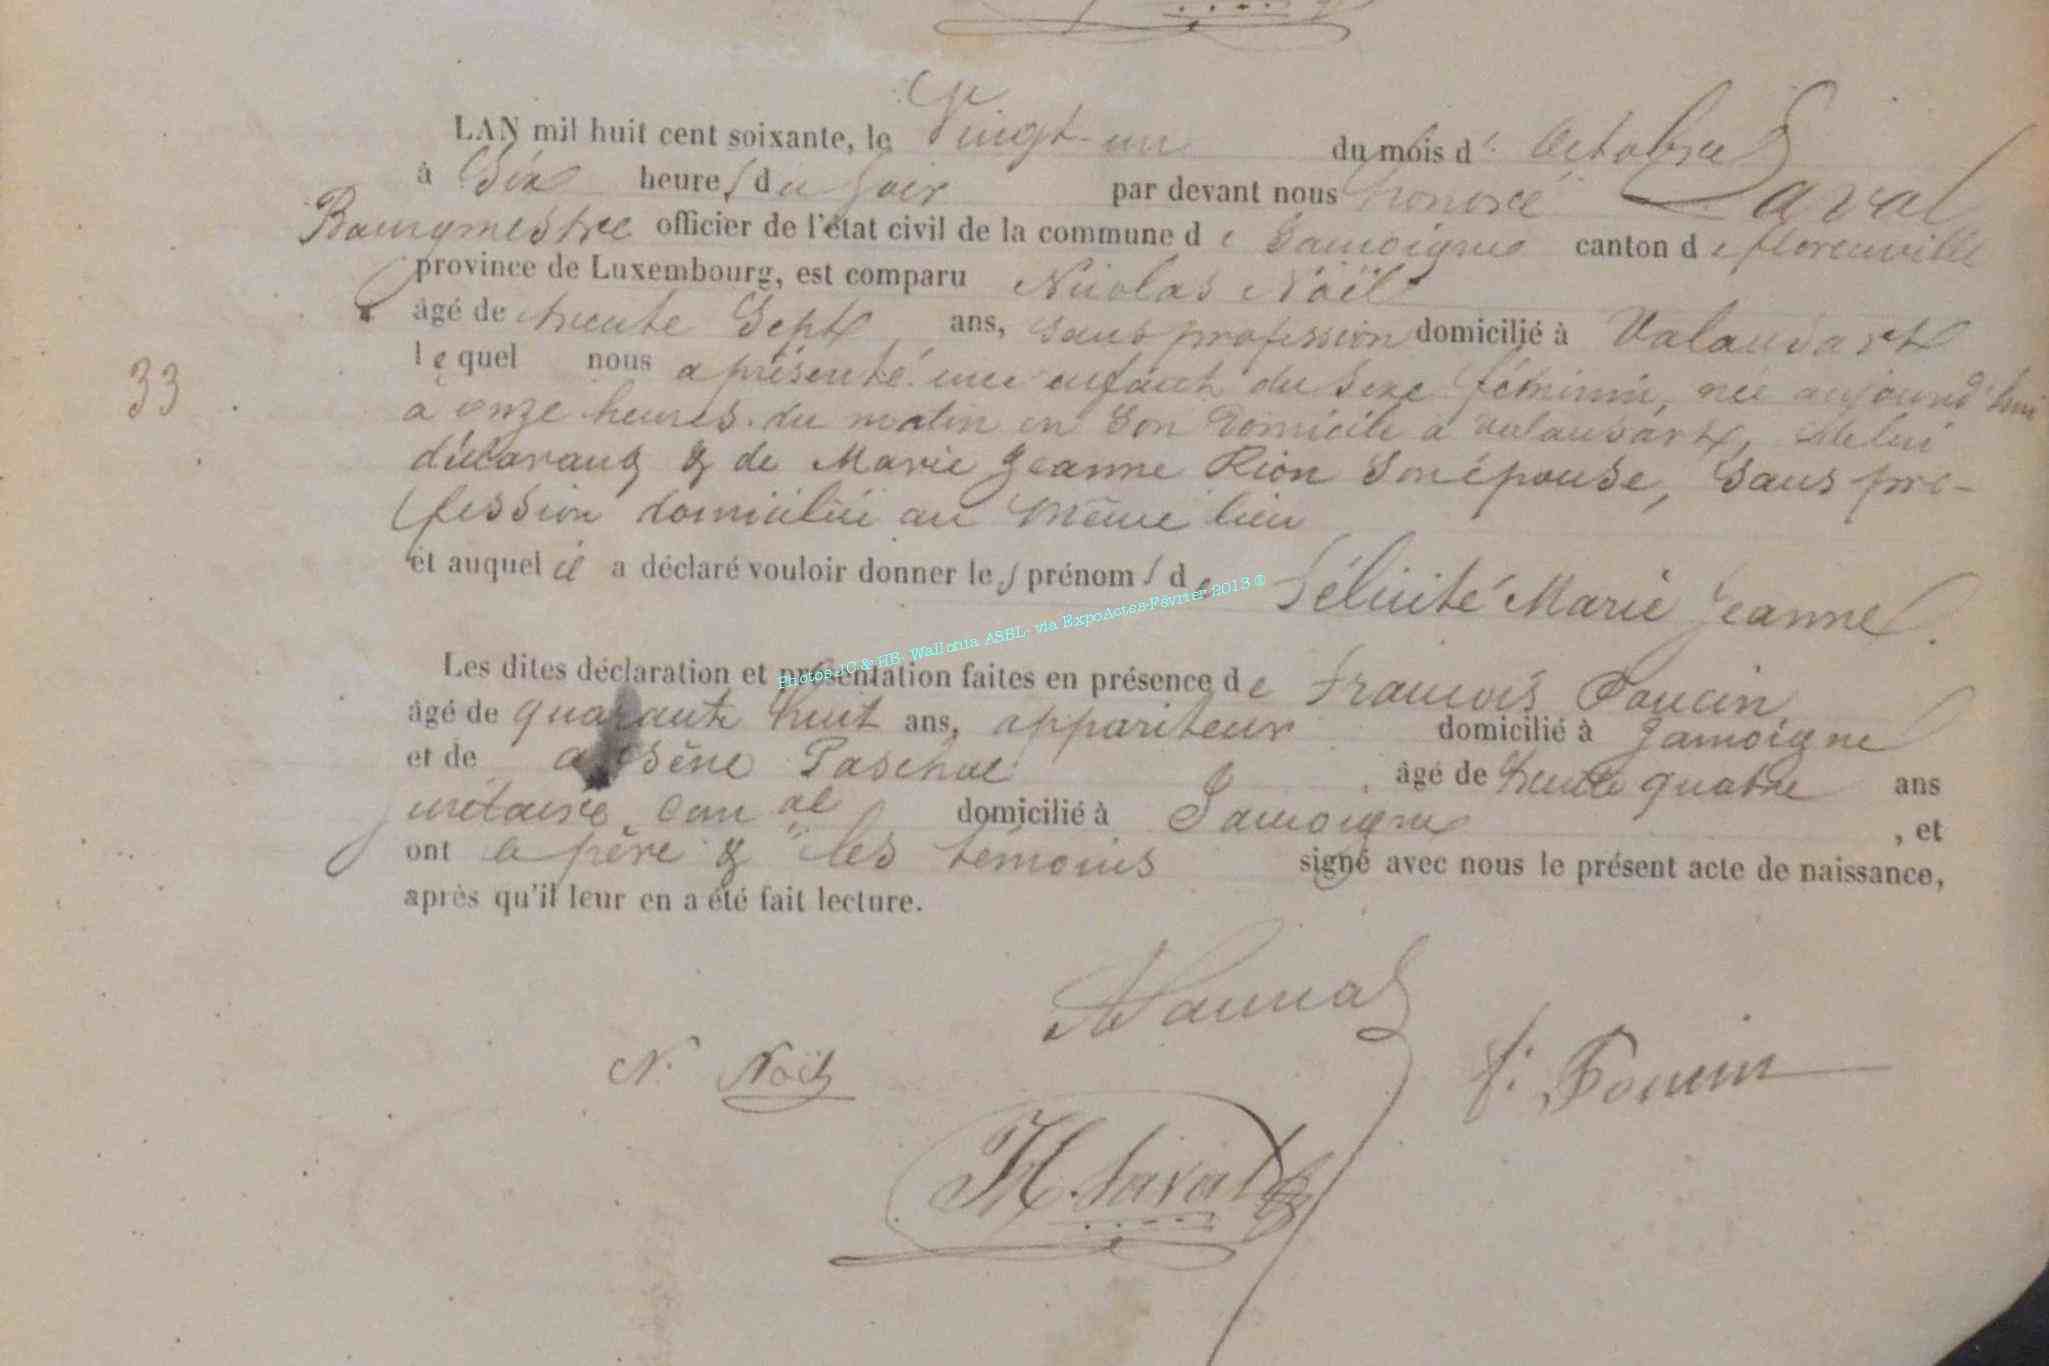 LAN mil huit cent soixante, le Vingt-un du mois d'octobre
à Six heures du soir par devant nous honoré Laval
Bourgmestre officier de l'état civil de la commune de Jamoigne canton de florenville
province de Luxembourg, est comparu Nicolas Noël
âgé de trente Sept ans, sans profession domicilié à Valansart
lequel nous a présenté une enfant du sexe féminin, née aujourd'hui
à onze heures du matin en son domicile à valansart, de lui
déclarant & de Marie Jeanne Rion son épouse, sans pro-
fession domiciliée au même lieu
et auquel il a déclaré vouloir donner les prénoms de Félicité Marie Jeanne.
Photos JC & HB- Wallonia ASBL- via ExpoActes-Février 2013 ®
Les dites déclaration et présentation faites en présence de François
âgé de quarante huit ans, appariteur domicilié à Jamoigne
et de arsène âgé de trente quatre ans
domicilié à Jamoigne, et
ont le père & les témoins signé avec nous le présent acte de naissance,
après qu'il leur en a été fait lecture.
33
N. Noël
H. Laval